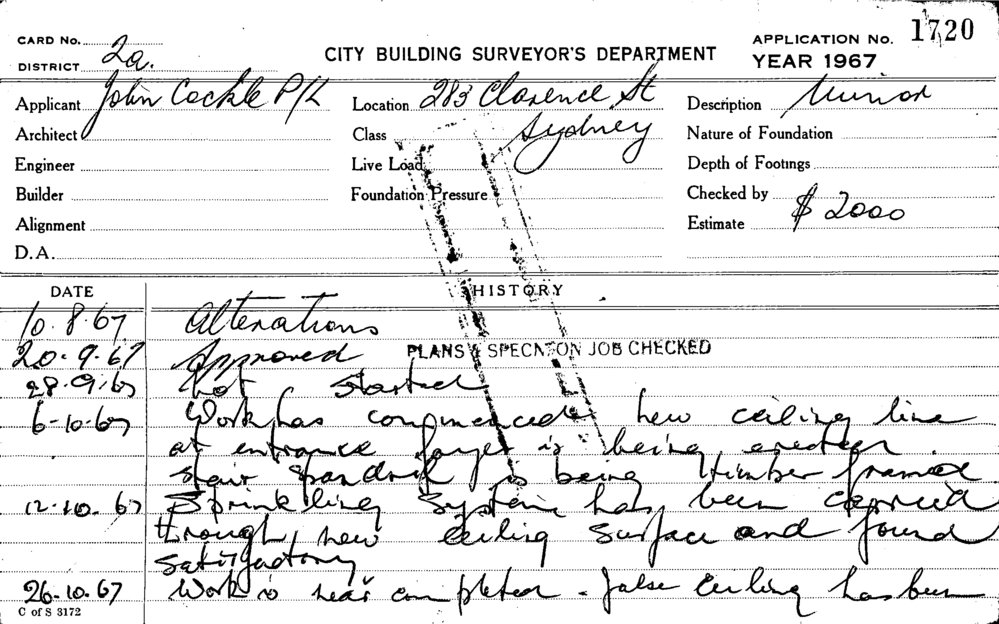 CARD No.
DISTRICT 2a.
CITY BUILDING SURVEYOR'S DEPARTMENT
APPLICATION No. 1720
YEAR 1967
Applicant John Cockle P/L
Location 283 Clarence St
Sydney
Description Minor
Architect
Class
Nature of Foundation
Engineer
Live Load
Depth of Footings
Builder
Foundation Pressure
Checked by
Alignment
Estimate $ 2000
D.A.
DATE
HISTORY
10.8.67 Alterations
20.9.67 Approved PLANS & SPECN. ON JOB CHECKED
28.9.67 Not Started
6-10-67 Work has commenced new ceiling line
at entrance foyer is being erected
stair spandril is being timber framed
12.10.67 Sprinkling System has been carried
through new ceiling surface and found
satisfactory
26.10.67 Work is near completed - false ceiling has been
C of S 3172